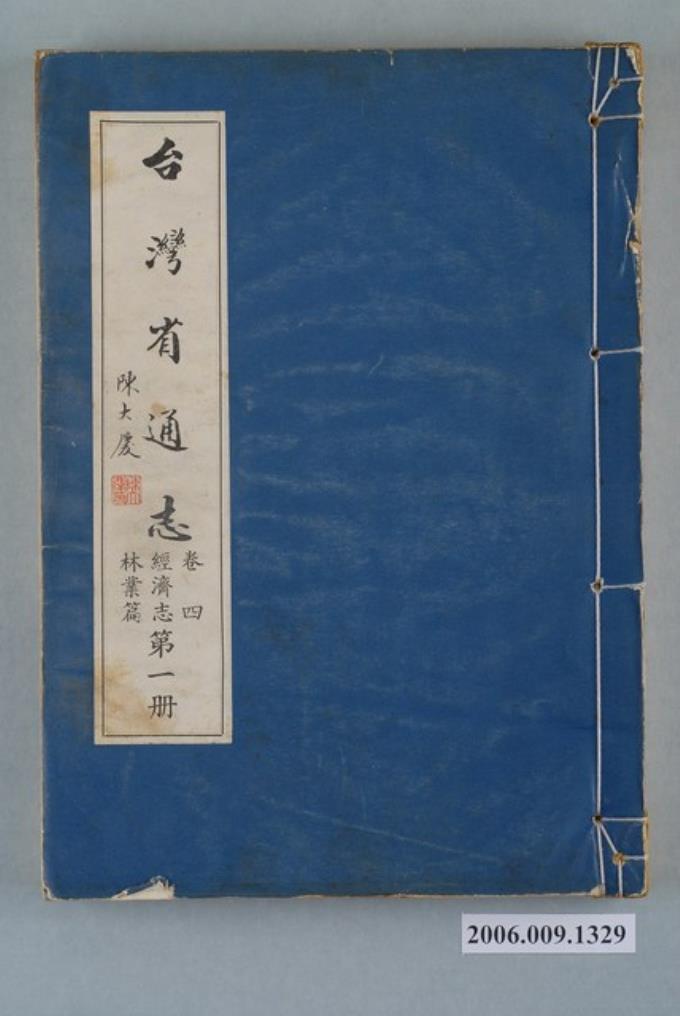 台灣省通志
卷四
經濟志第一册
林業篇
陳大慶
2006.009.1329